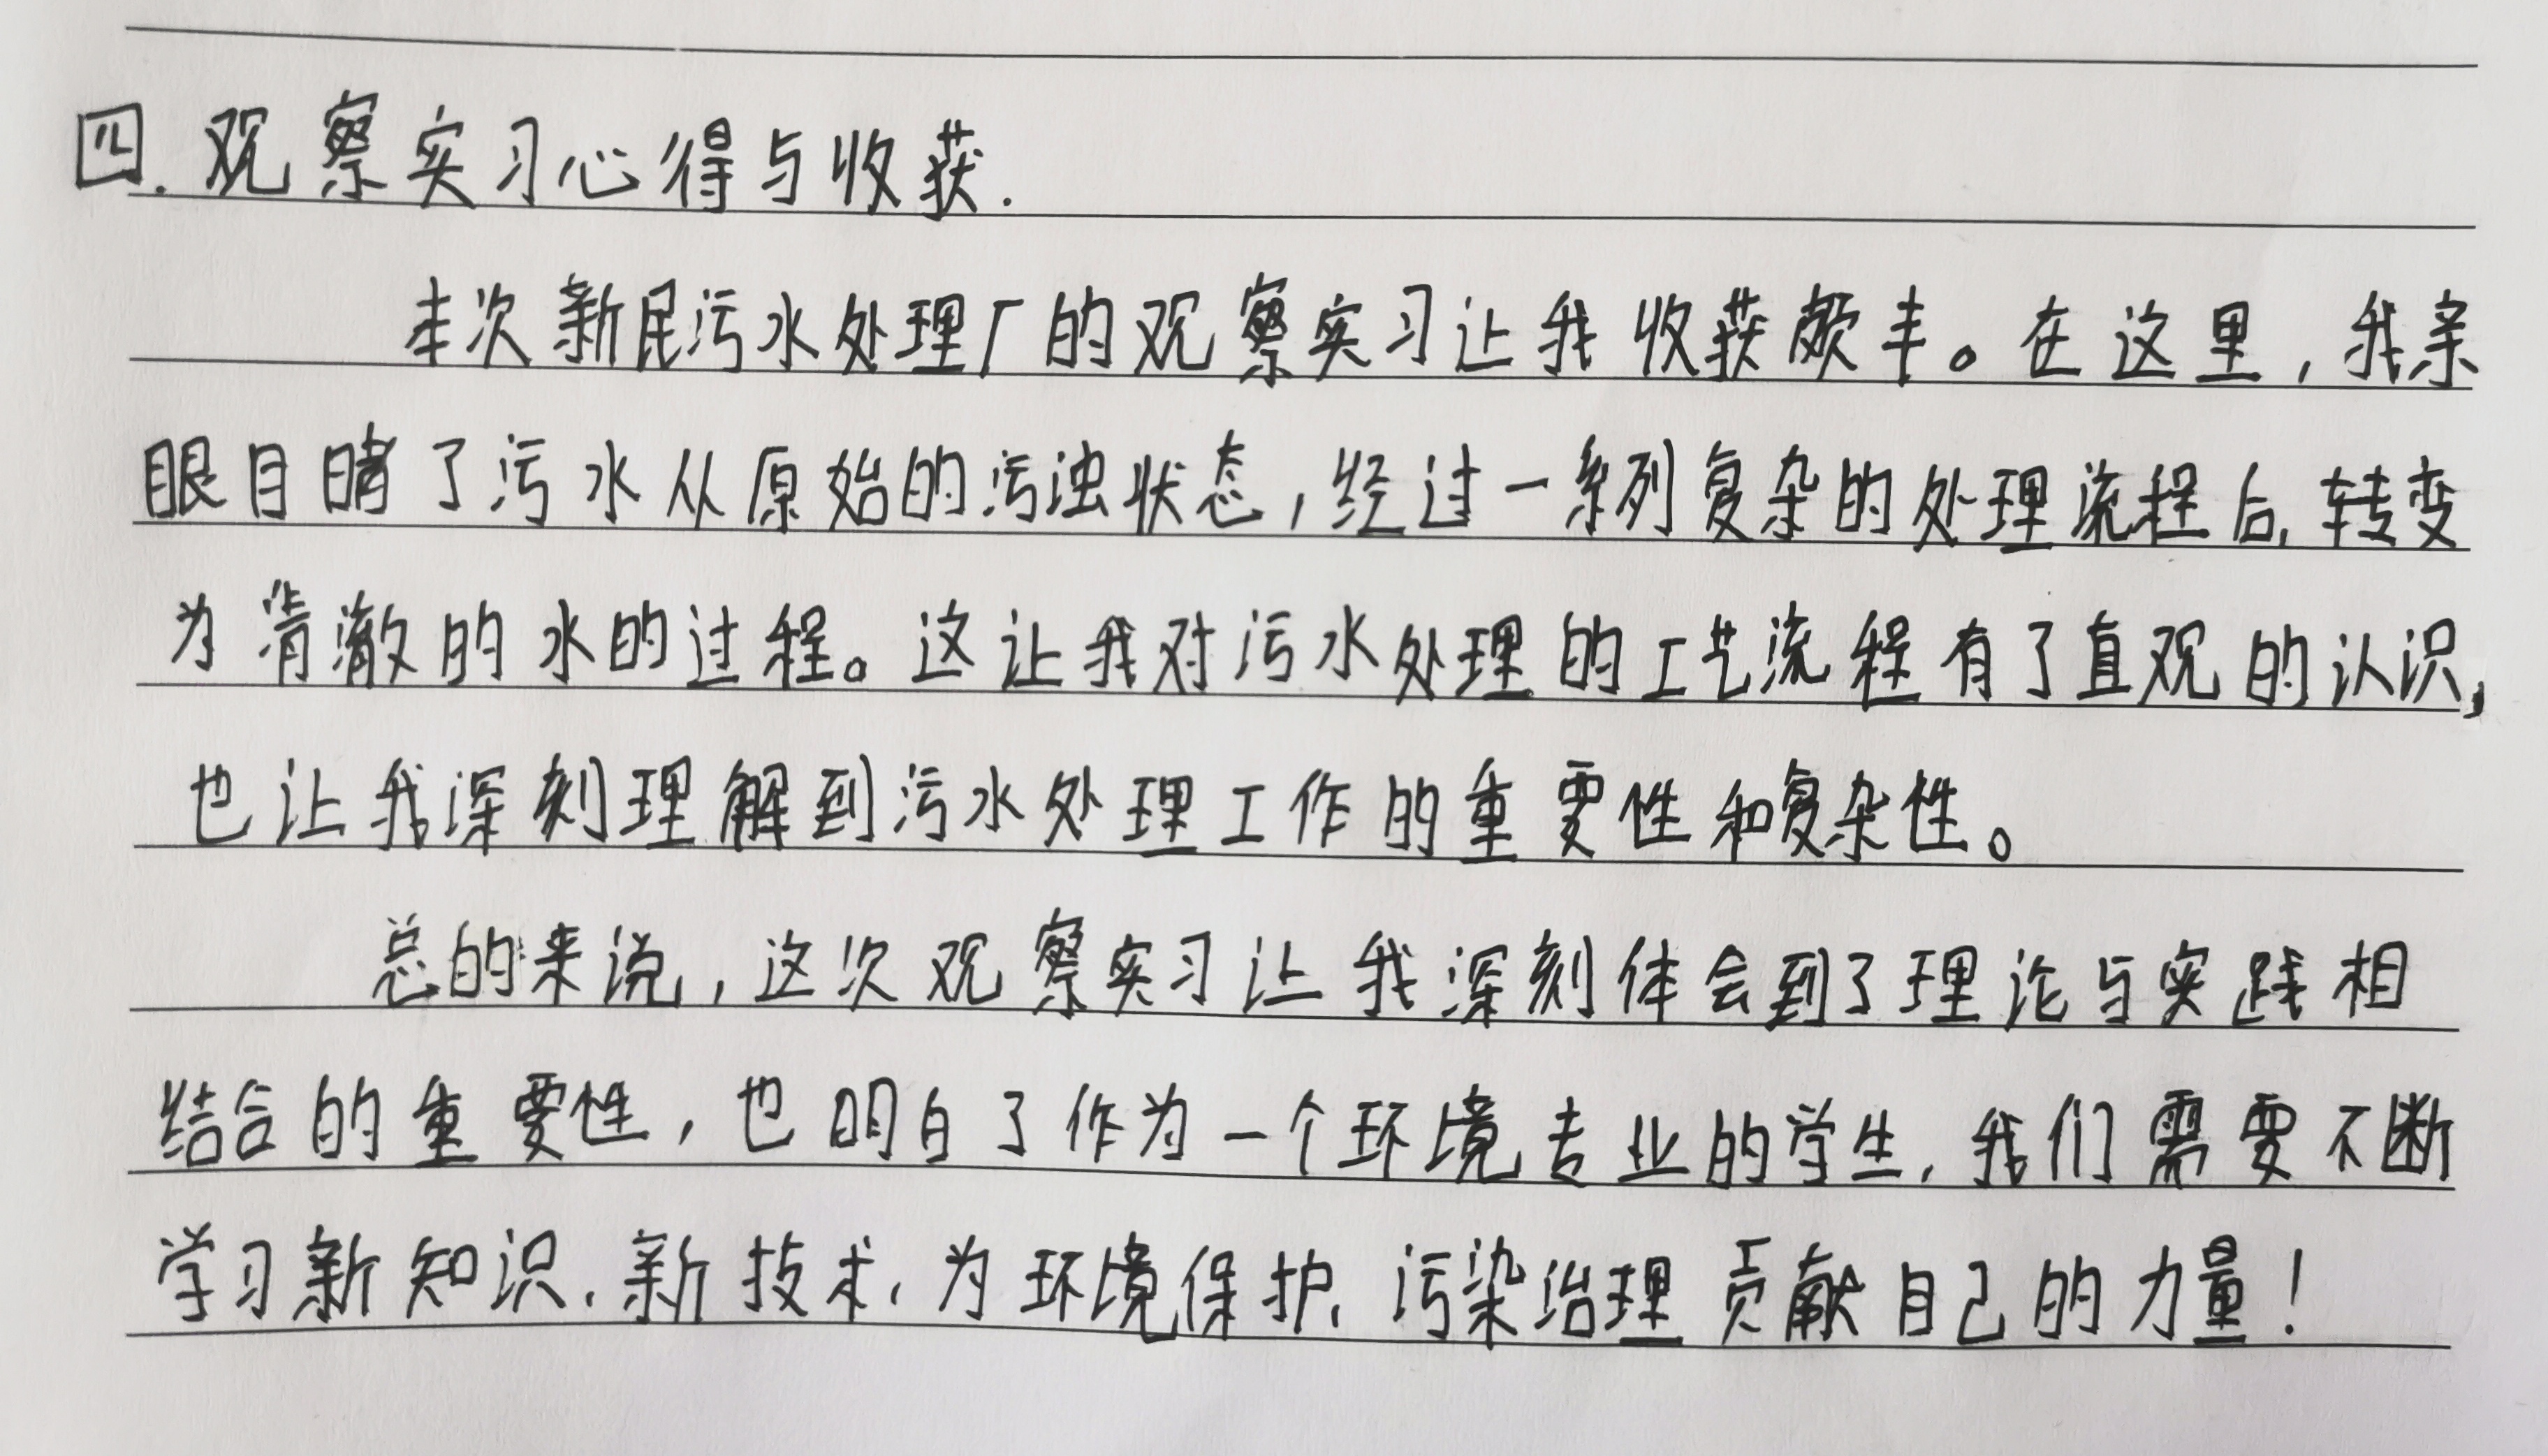 四.观察实习心得与收获.
本次新民污水处理厂的观察实习让我收获颇丰。在这里,我亲
眼目睹了污水从原始的污浊状态,经过一系列复杂的处理流程后,转变
为清澈的水的过程。这让我对污水处理的工艺流程有了直观的认识,
也让我深刻理解到污水处理工作的重要性和复杂性。
总的来说,这次观察实习让我深刻体会到了理论与实践相
结合的重要性,也明白了作为一个环境专业的学生,我们需要不断
学习新知识、新技术,为环境保护、污染治理贡献自己的力量!